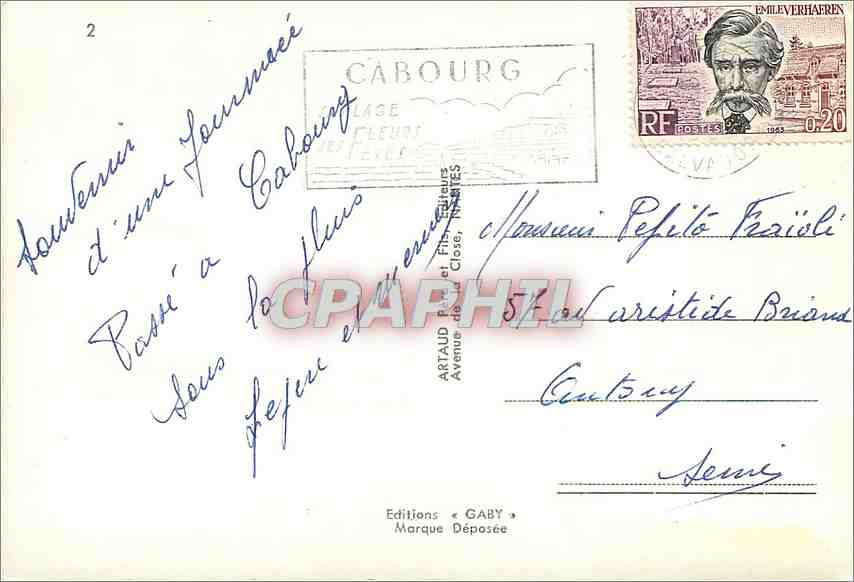 2
CABOURG
PLAGE
FLEURS
FETES
EMILE VERHAEREN
RF
POSTES
1963
0,20
CALVADOS
Souvenir
d'une Journnaée
Passé a Cabourg
Sous la pluis
et
ARTAUD Père et Fils, Editeurs
Avenue de la Close, NANTES
CPARPHIL
Monsieur Pepito Fraïoli
57 av aristide Briand
Antony
Seine
Editions « GABY »
Marque Déposée